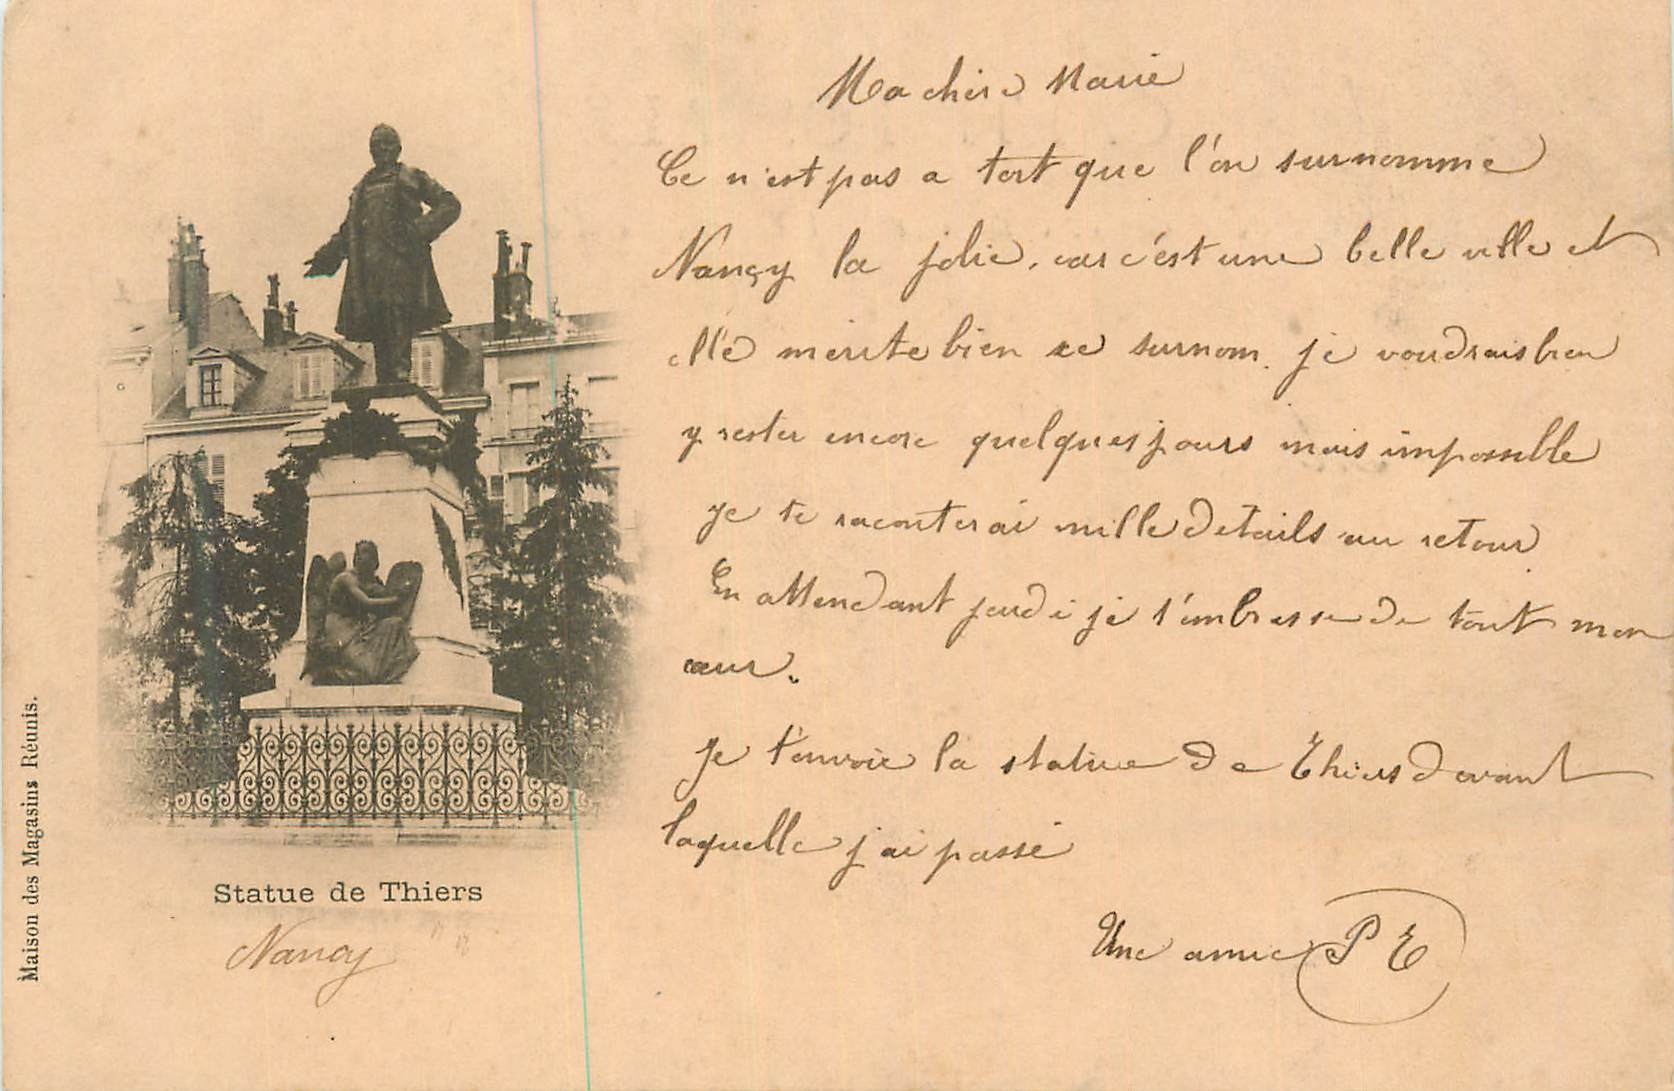 Ma chère Marie
Ce n'est pas a tort que l'on surnomme
Nançy la jolie, car c'est une belle ville et
elle mérite bien ce surnom. je voudrais bien
y rester encore quelques jours mais impossible
je te raconterai mille détails au retour
En attendant jeudi je t'embrasse de tout mon
cœur.
Je t'envoie la statue de Thiers devant
laquelle j'ai passé
Une amie P E
Statue de Thiers
Nancy
Maison des Magasins Réunis.